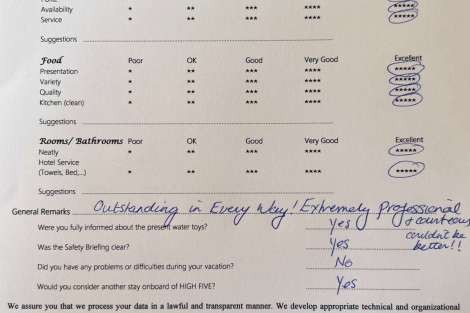 Availability * ** *** **** *****
Service * ** *** **** *****
Suggestions
Food Poor OK Good Very Good Excellent
Presentation * ** *** **** *****
Variety * ** *** **** *****
Quality * ** *** **** *****
Kitchen (clean) * ** *** **** *****
Suggestions
Rooms/ Bathrooms Poor OK Good Very Good Excellent
Neatly * ** *** **** *****
Hotel Service
(Towels, Bed,...) * ** *** **** *****
Suggestions
General Remarks Outstanding in Every Way! Extremely Professional
& courteous
couldn't be
better!!
Were you fully informed about the present water toys? Yes
Was the Safety Briefing clear? Yes
Did you have any problems or difficulties during your vacation? No
Would you consider another stay onboard of HIGH FIVE? Yes
We assure you that we process your data in a lawful and transparent manner. We develop appropriate technical and organizational